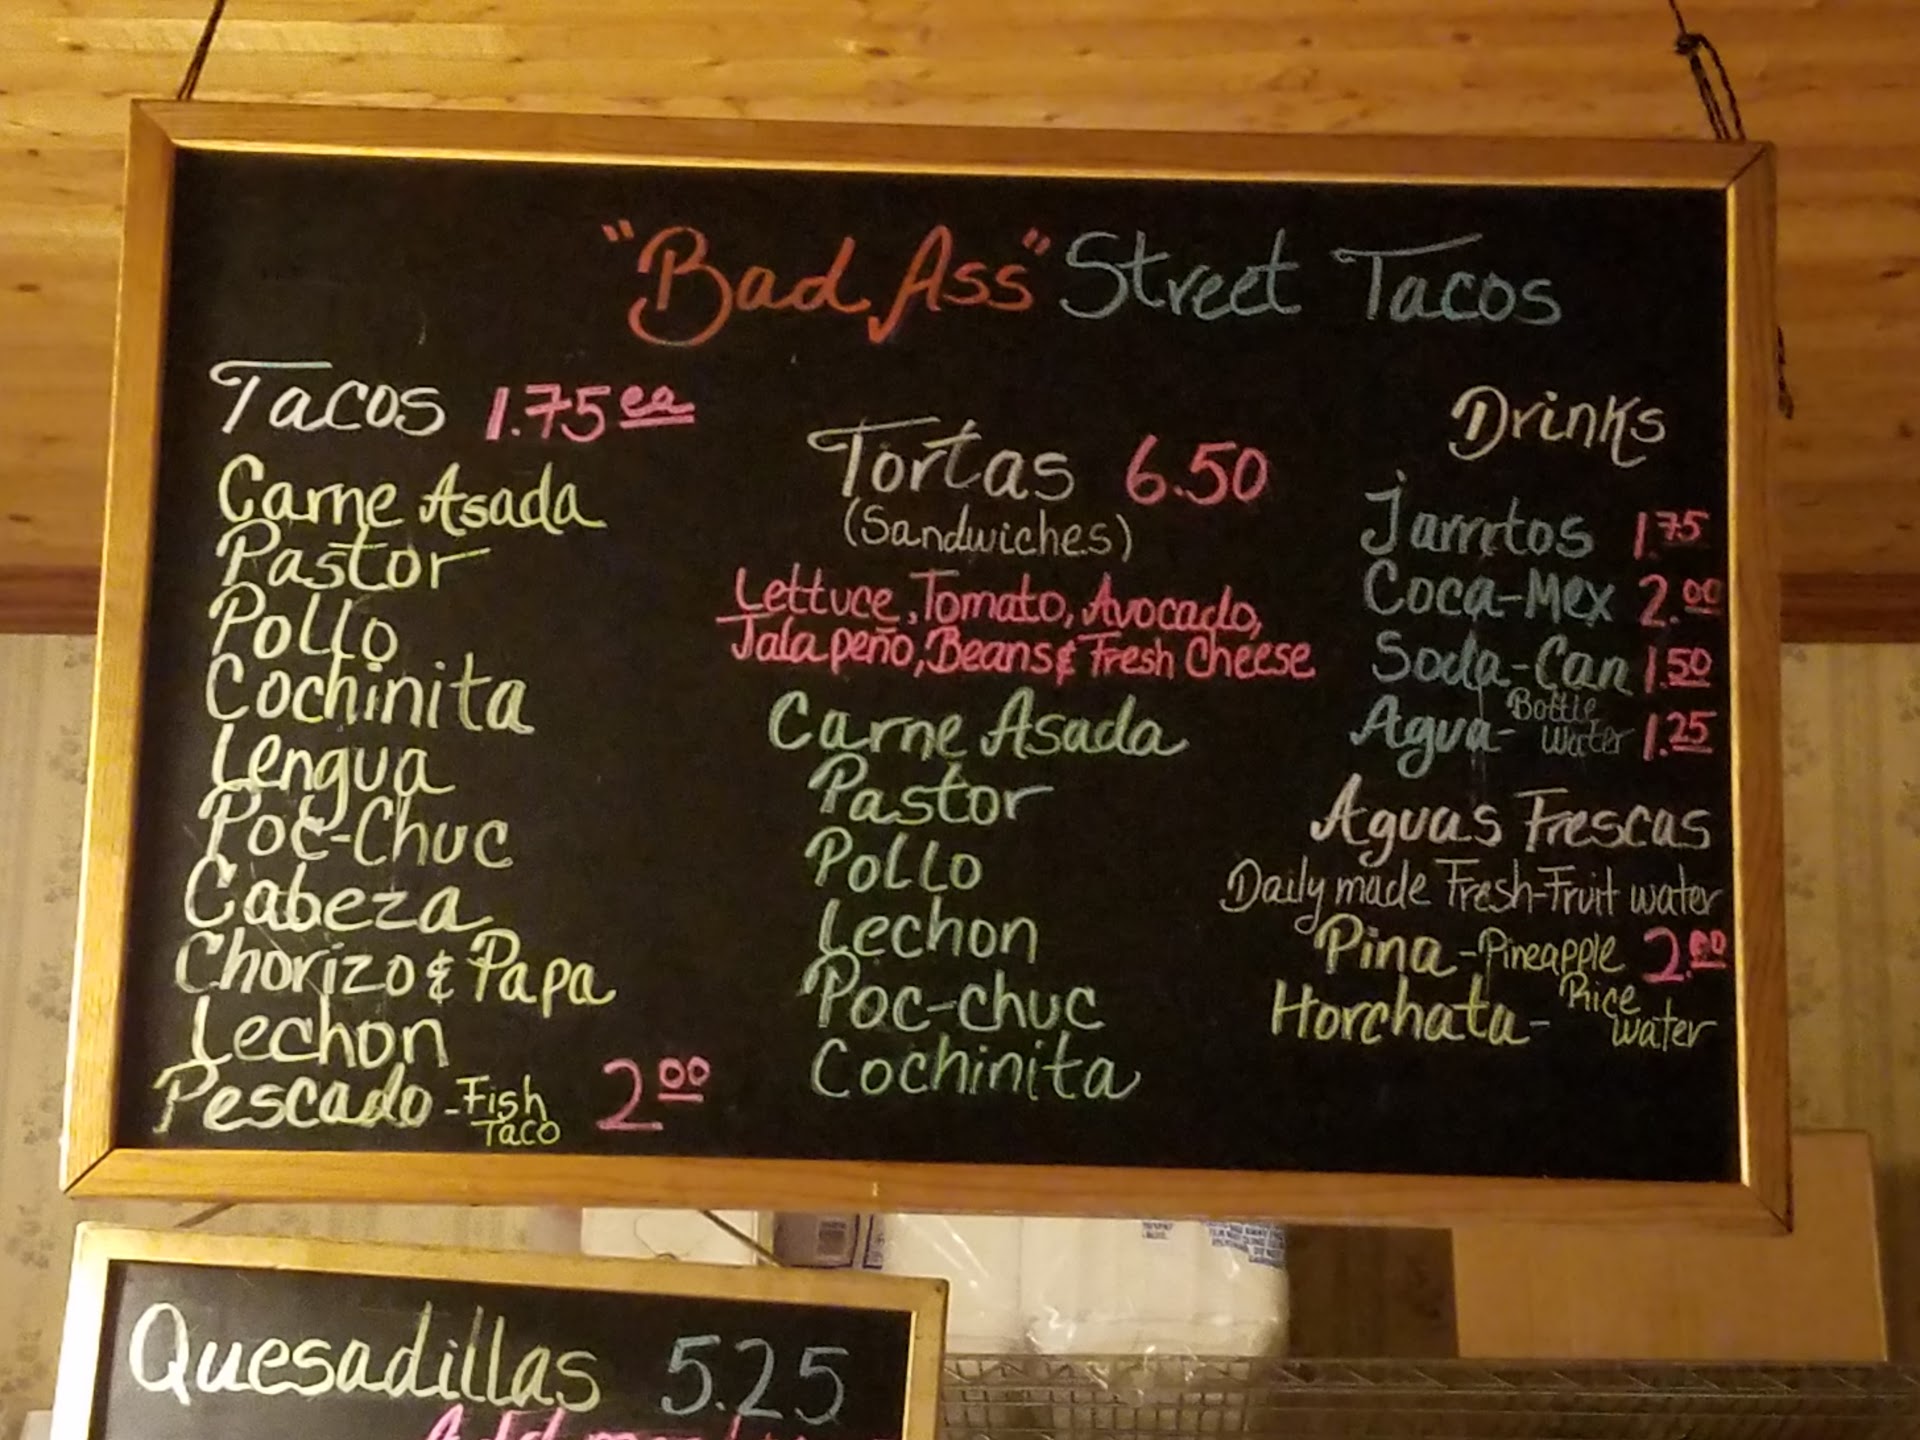 "Bad Ass" Street Tacos
Tacos 1.75 ea
Carne Asada
Pastor
Pollo
Cochinita
Lengua
Poc-Chuc
Cabeza
Chorizo & Papa
Lechon
Pescado - Fish Taco 2.00
Tortas 6.50
(Sandwiches)
Lettuce, Tomato, Avocado,
Jalapeño, Beans & Fresh Cheese
Carne Asada
Pastor
Pollo
Lechon
Poc-chuc
Cochinita
Drinks
Jarritos 1.75
Coca-Mex 2.00
Soda-Can 1.50
Agua- Bottle water 1.25
Aguas Frescas
Daily made Fresh-Fruit water
Pina - Pineapple 2.00
Horchata - Rice water
Quesadillas 5.25